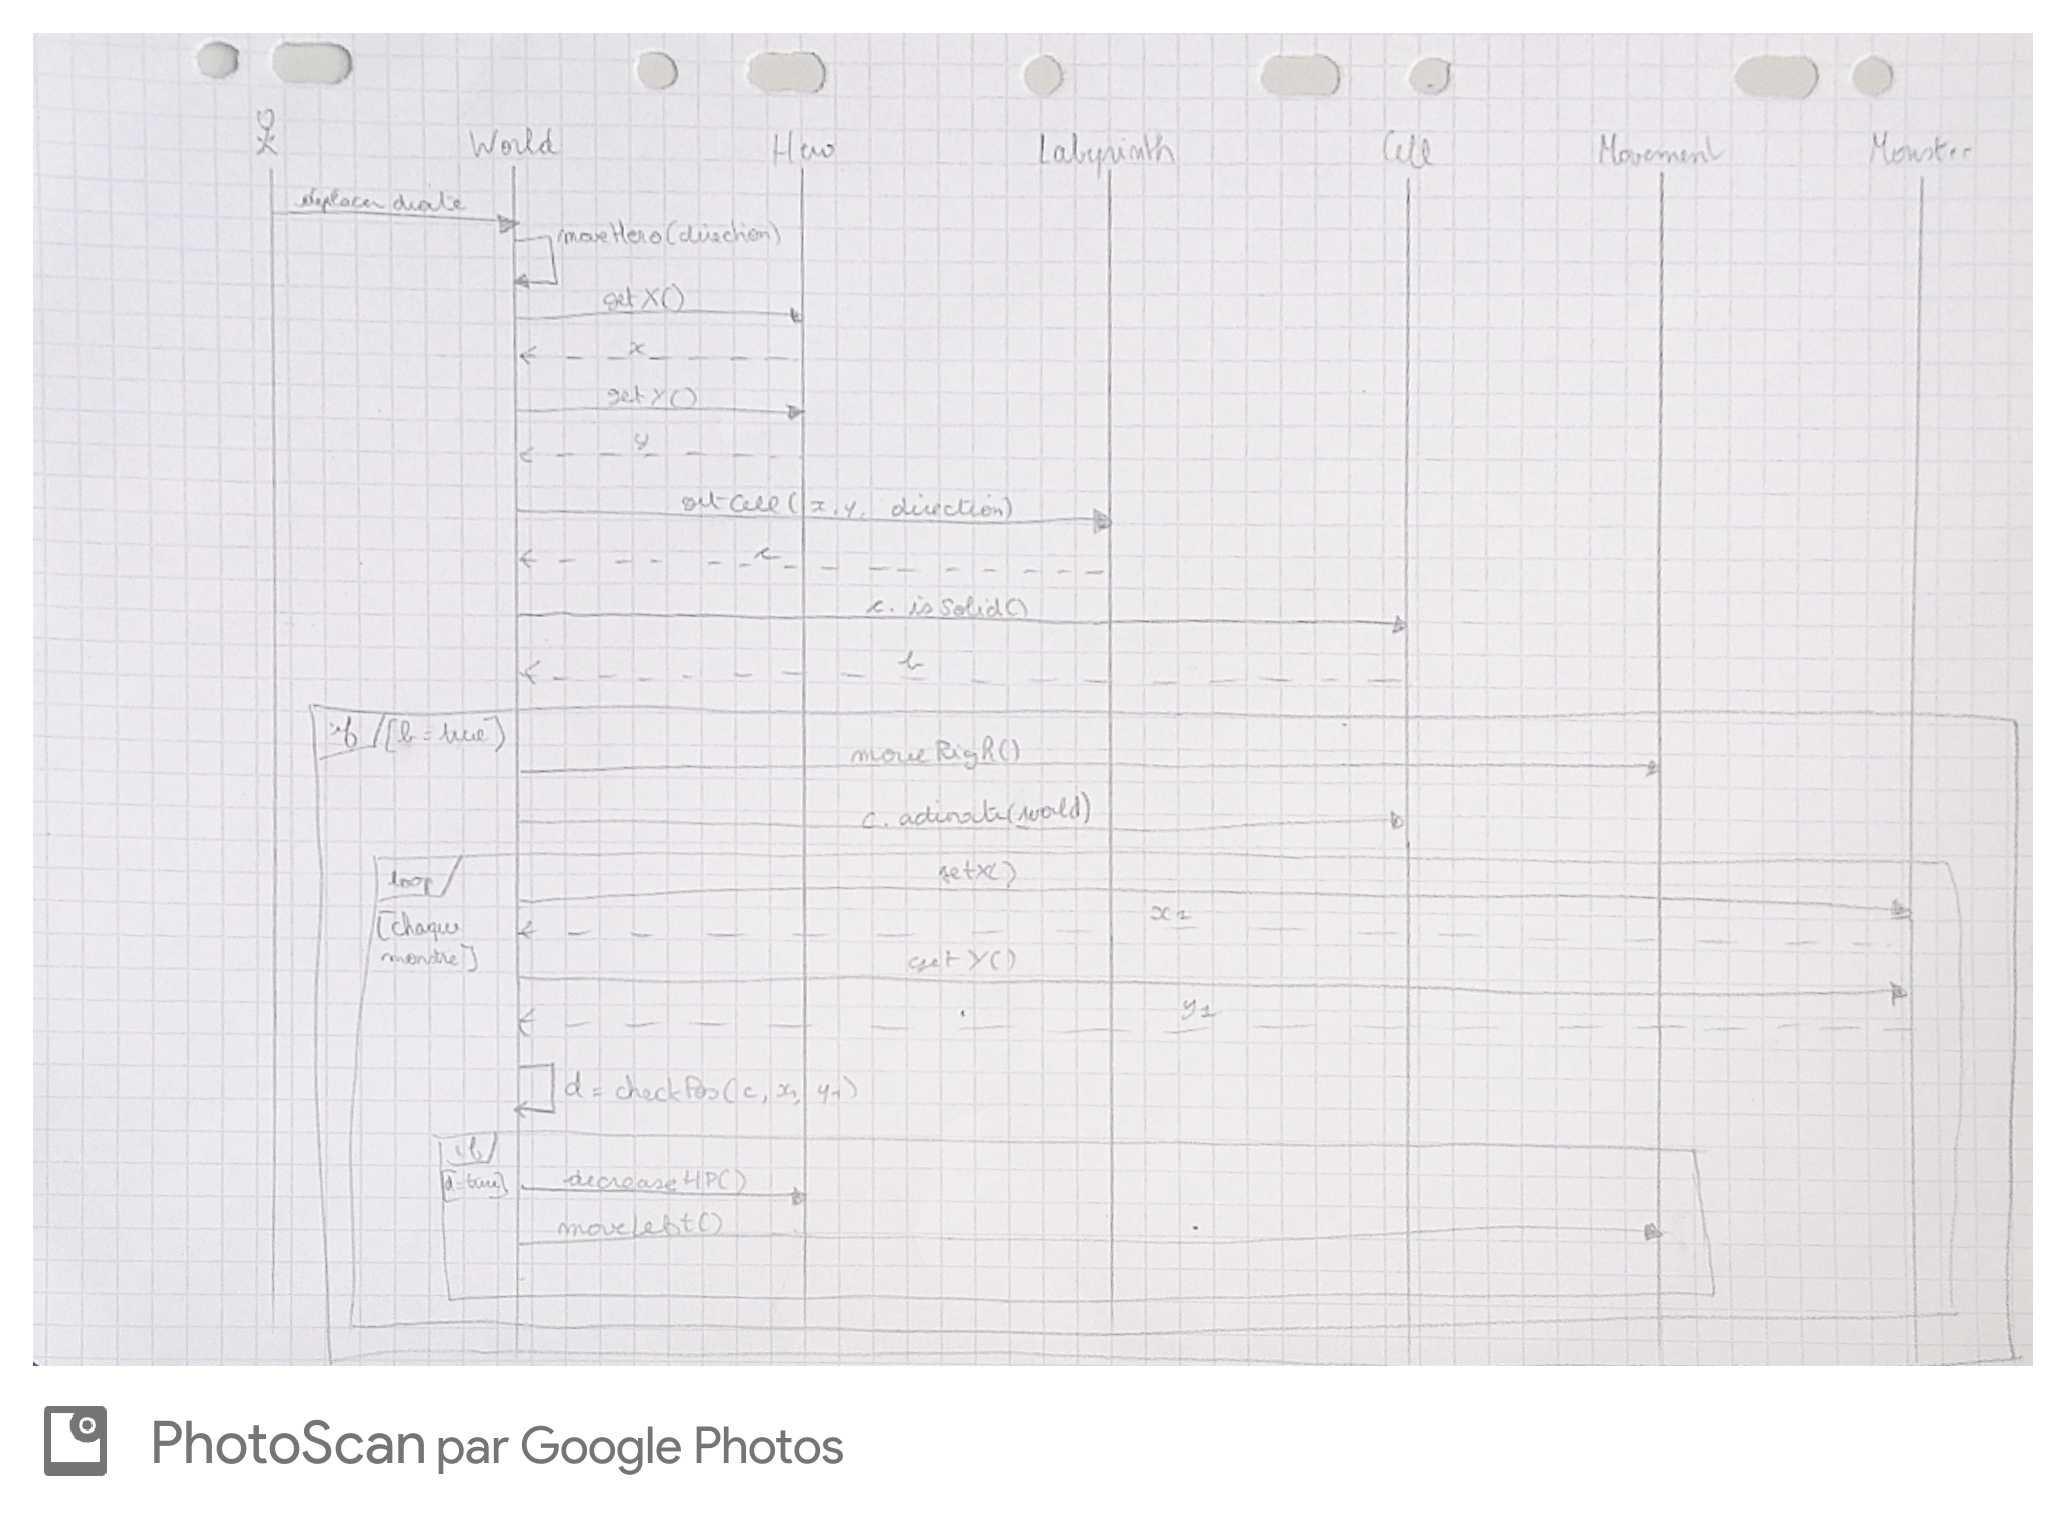 World Hero Labyrinth Cell Movement Monster
deplacer droite
moveHero(direction)
getX()
x
getY()
y
getCell(x, y, direction)
c
c. isSolid()
b
if [b = true]
moveRigh()
c. activate(world)
loop
getX()
[chaque
x1
monstre]
getY()
y1
d = checkPos(c, x1, y1)
if
[d=true]
decreaseHP()
moveLeft()
PhotoScan par Google Photos